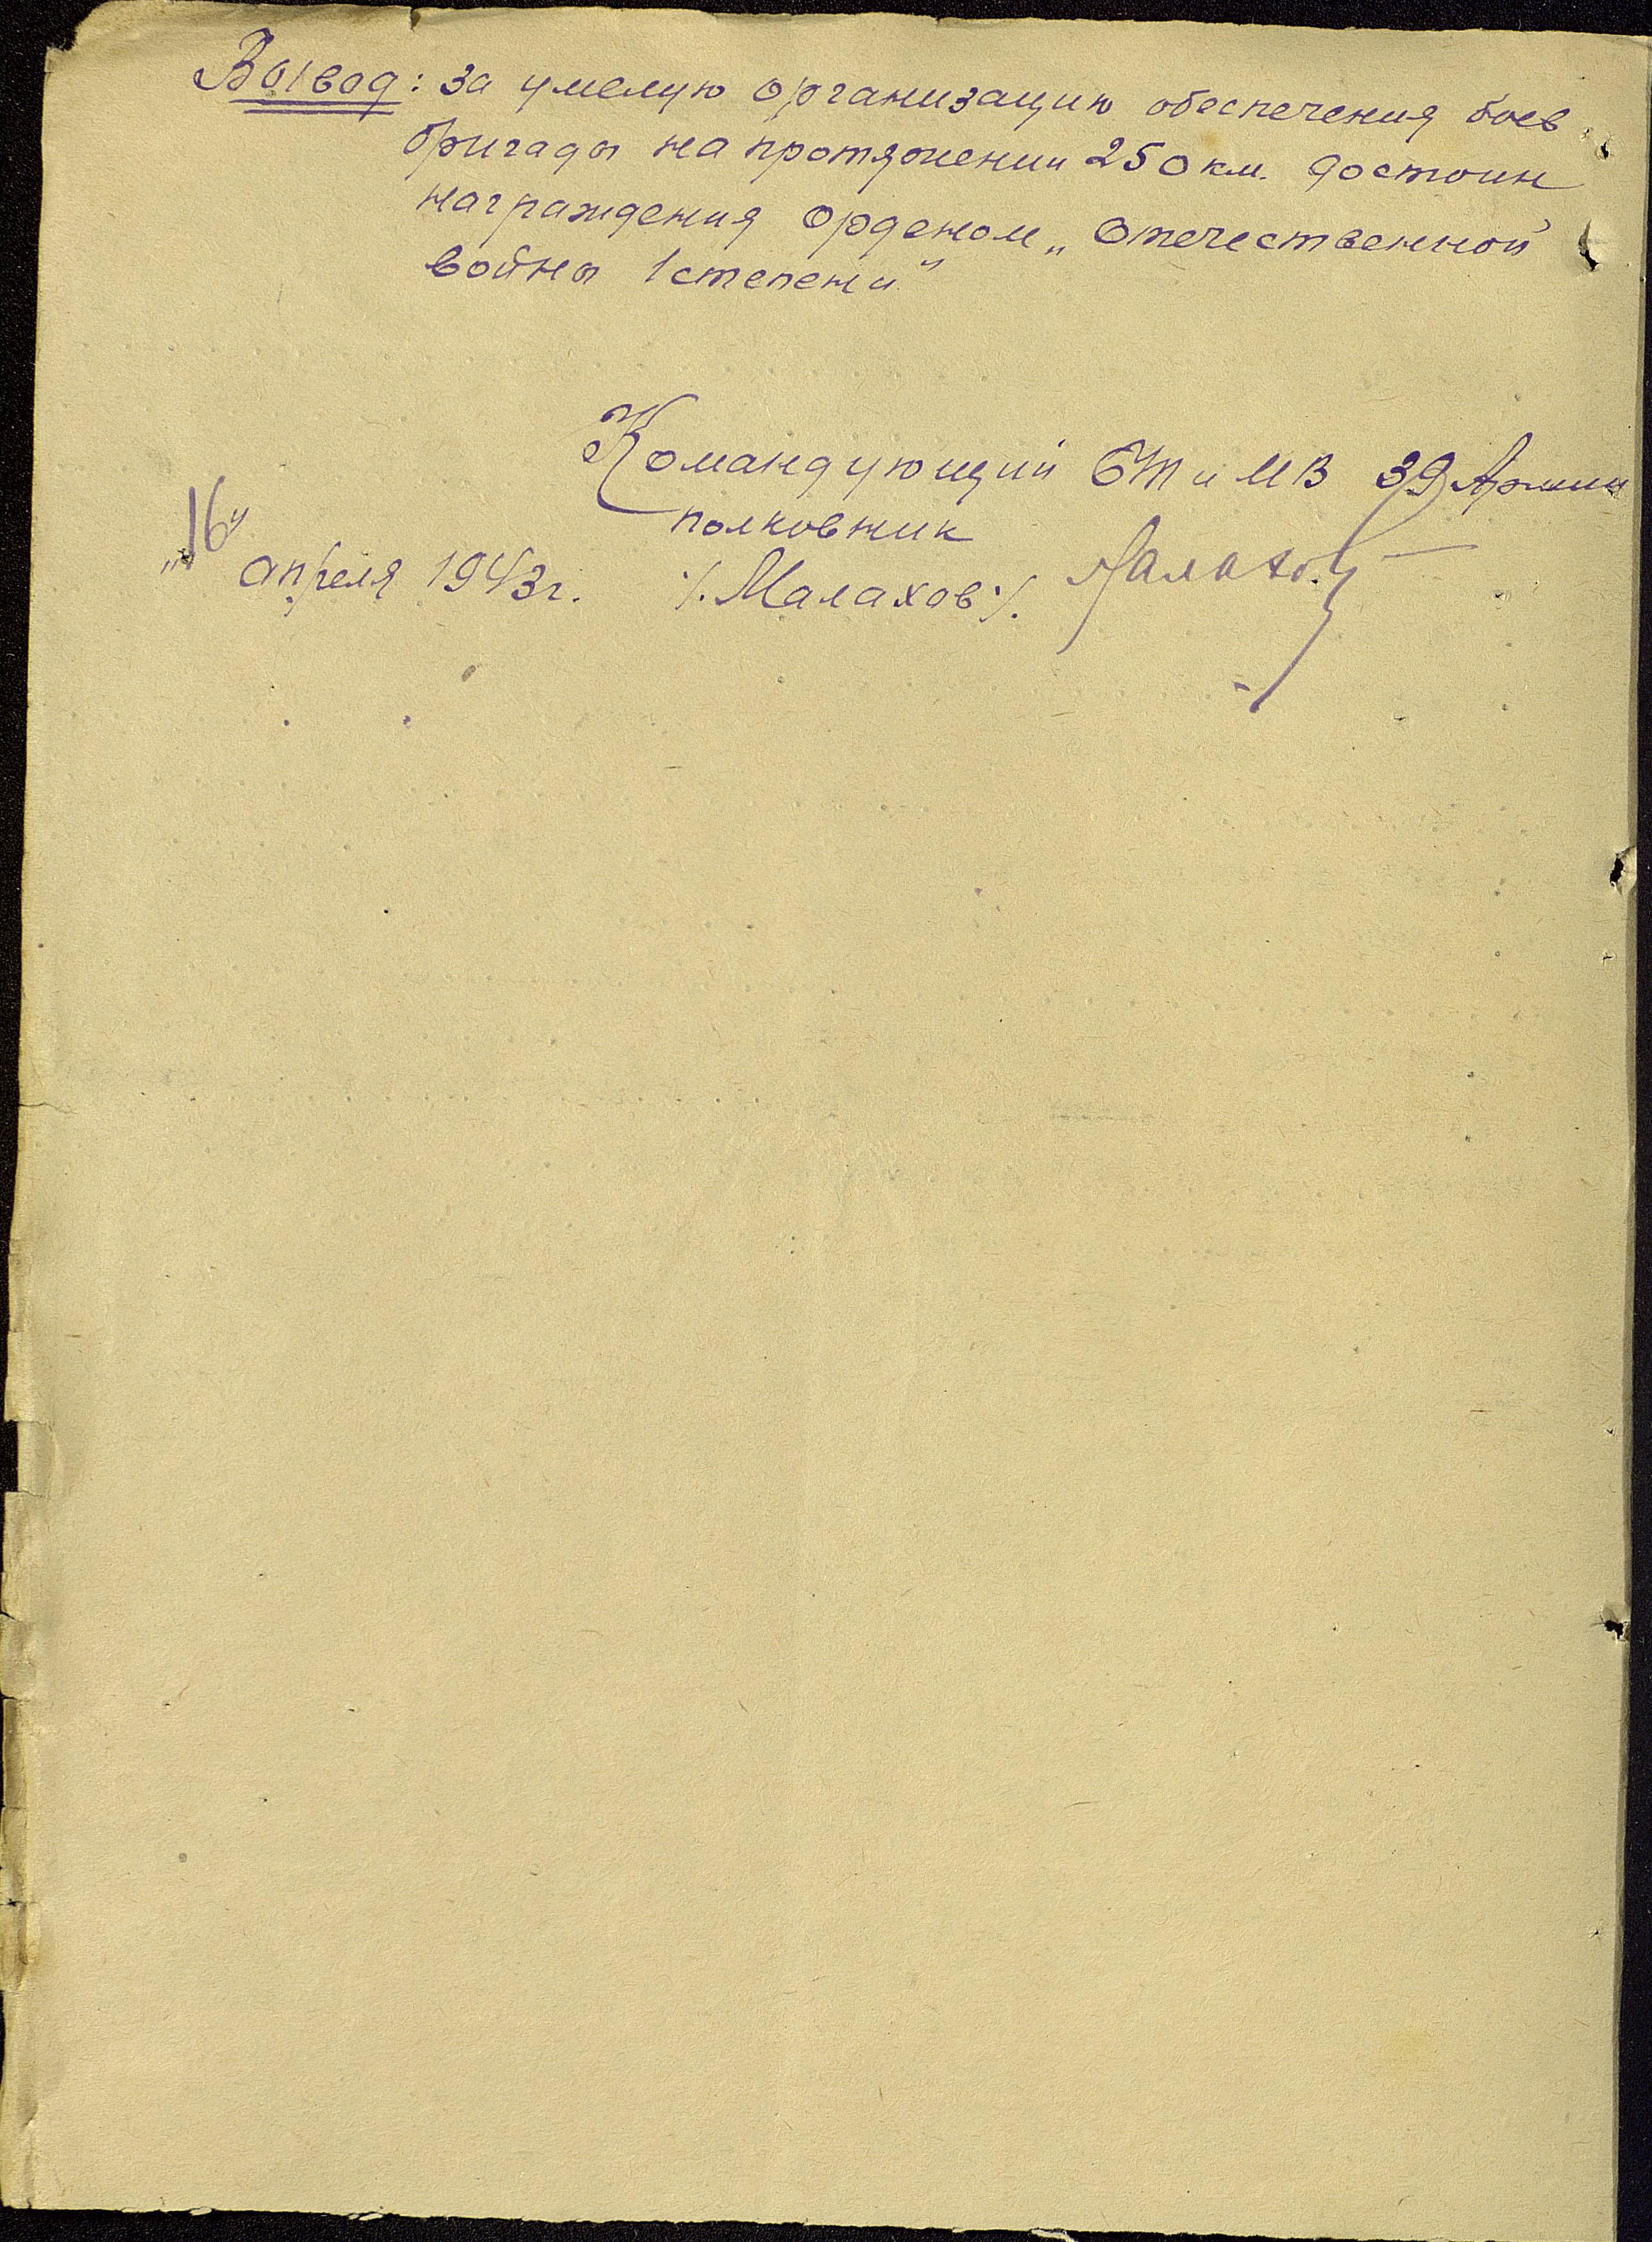 Вывод: за умелую организацию обеспечения боев
бригады на протяжении 250 км. достоин
награждения орденом „Отечественной
войны 1 степени"
Командующий БТ и МВ 39 Армии
полковник
„16"
апреля 1943 г. /. Малахов /. Малахов